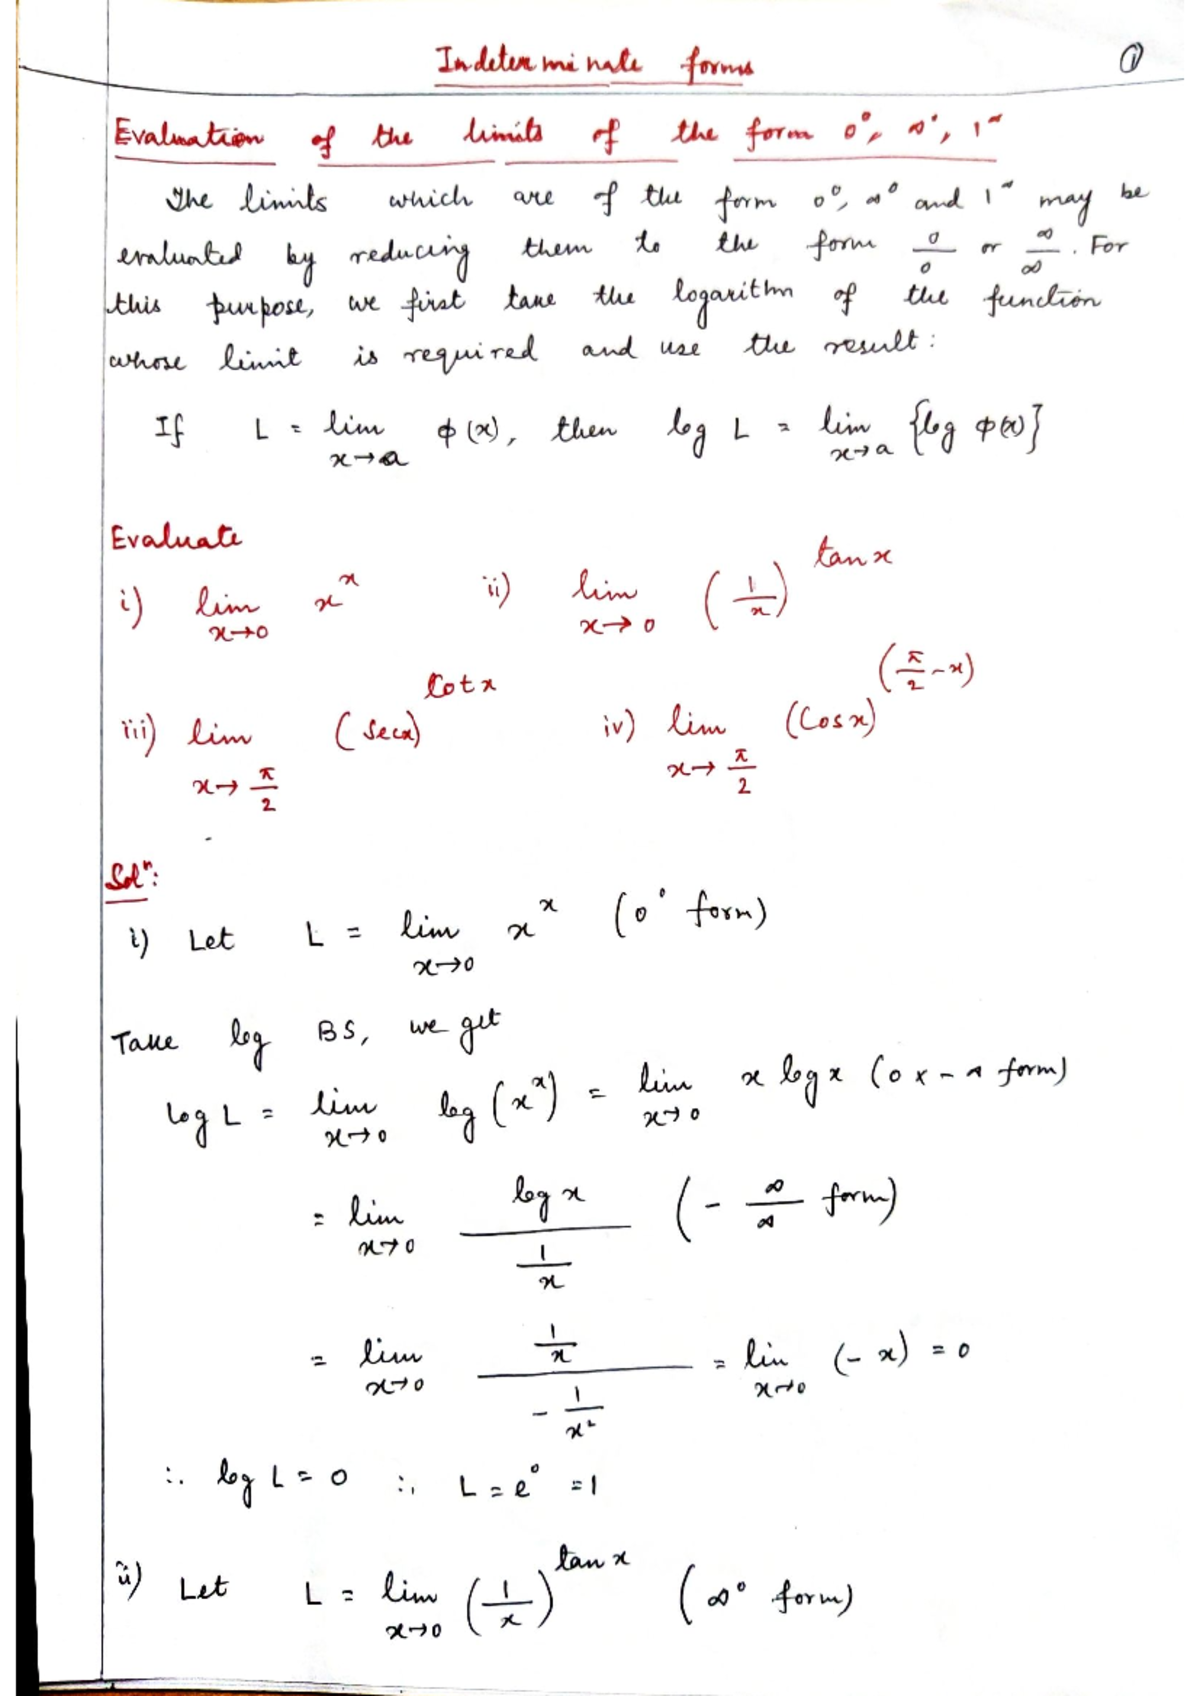 Indeterminate forms ①
Evaluation of the limits of the form 0⁰, ∞⁰, 1^∞
The limits which are of the form 0⁰, ∞⁰ and 1^∞ may be
evaluated by reducing them to the form 0/0 or ∞/∞. For
this purpose, we first take the logarithm of the function
whose limit is required and use the result:
If L = lim x→a φ(x), then log L = lim x→a {log φ(x)}
Evaluate
i) lim x→0 x^x ii) lim x→0 (1/x)^tan x
iii) lim x→π/2 (Sec x)^Cot x iv) lim x→π/2 (Cos x)^(π/2 - x)
Solⁿ:
i) Let L = lim x→0 x^x (0⁰ form)
Take log BS, we get
log L = lim x→0 log (x^x) = lim x→0 x log x (0 x - ∞ form)
= lim x→0 log x / (1/x) (- ∞/∞ form)
= lim x→0 (1/x) / (- 1/x²) = lim x→0 (- x) = 0
∴ log L = 0 ∴ L = e⁰ = 1
ii) Let L = lim x→0 (1/x)^tan x (∞⁰ form)